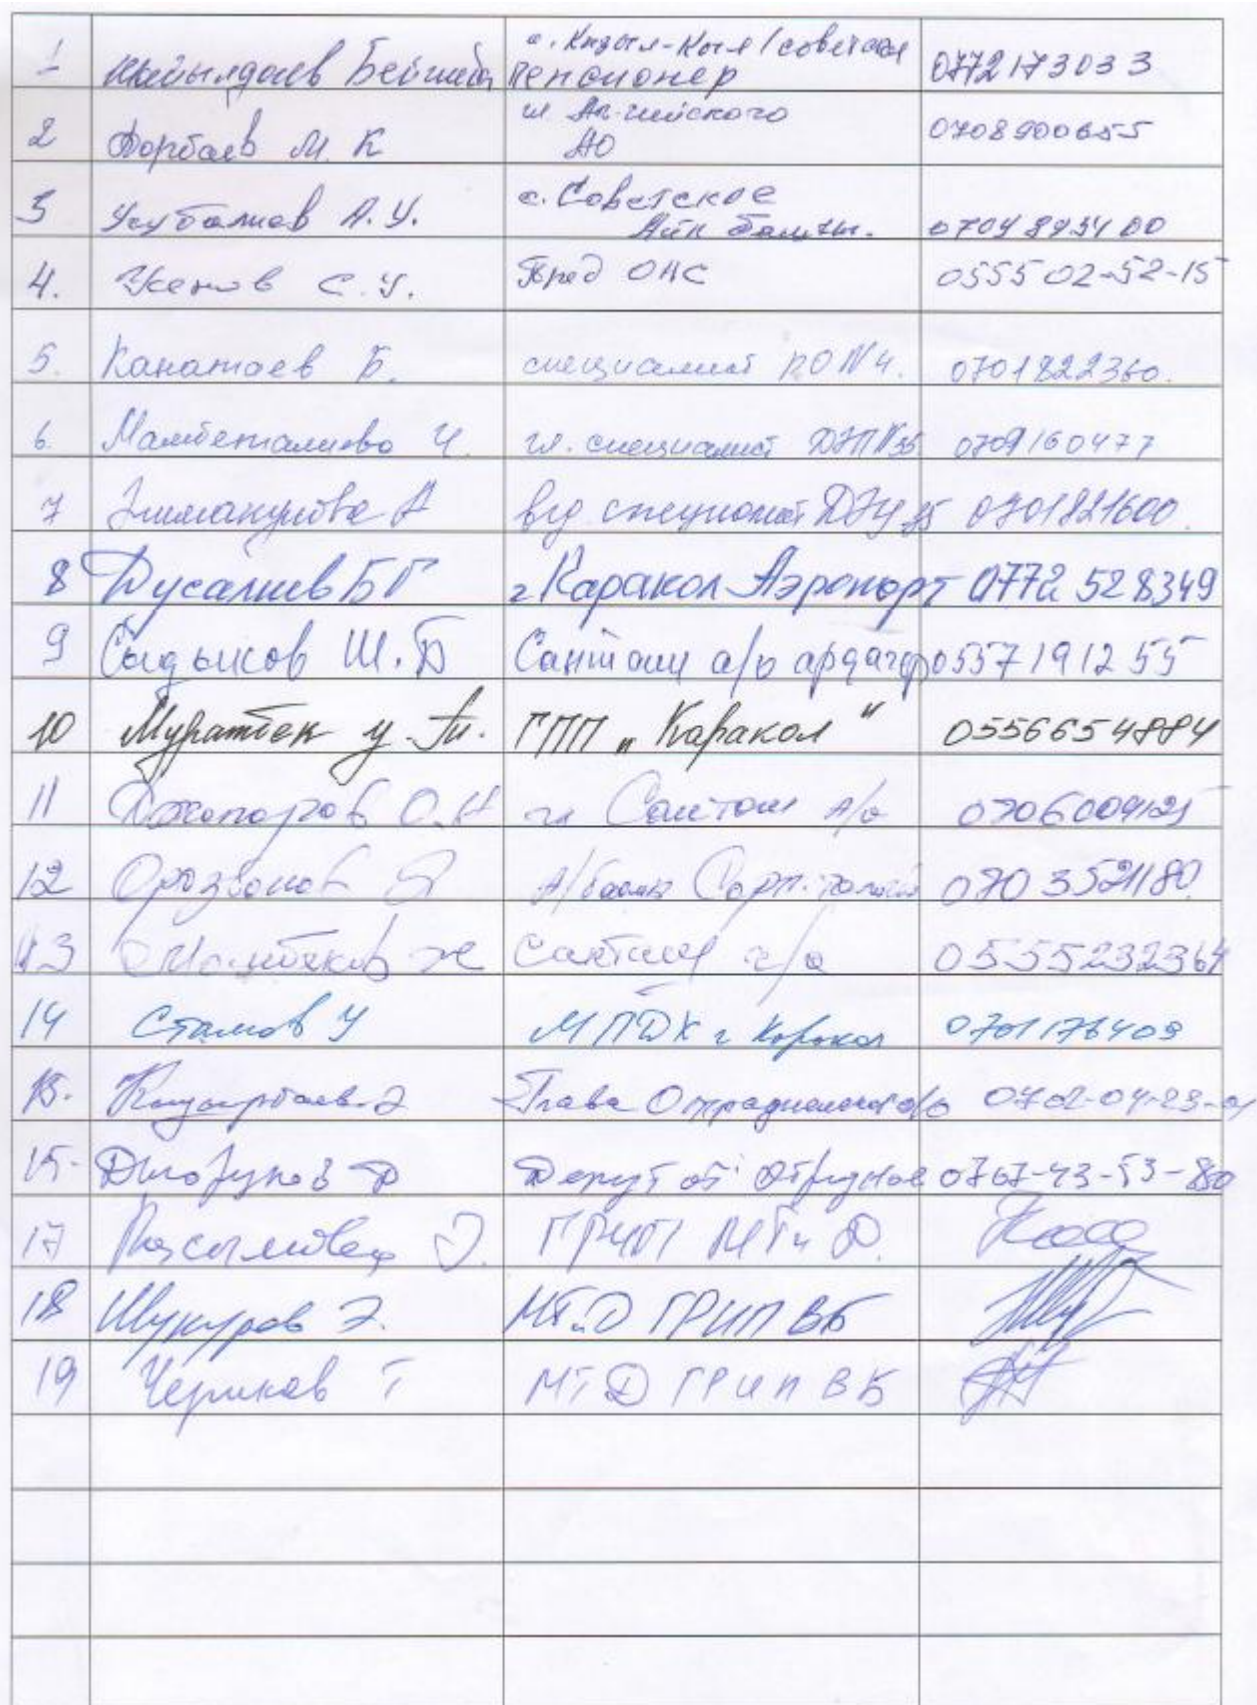 1 Кыйылдаев Бейшеба с. Кызыл-Кыя / советское пенсионер 0772173033
2 Дорбаев М. К АО 0708900655
3 Усубалиев А.У. с. Советское Айк башчы. 0709893400
4. Усенов С.У. Пред ОНС 0555 02-52-15
5. Канатаев Б. специалист РО №4. 0701822360.
6. Мамбеталиева Ч. гл. специалист ДЭП №35 0709160477
7 Эшманкулова А вед специалист ДЭУ 35 0701821600.
8 Дусалиев Б Г г Каракол Аэропорт 0772 528349
9 Садыков Ш. Б Санташ а/о ардагер 0557191255
10 Муратбек у. Ти. ГПП „Каракол" 0556654884
11 Джапаров О.А гл Санташ А/о 0706009125
12 Орозбаков А/башы 0703521180
13 Мамбеков Ж Санташ а/о 0555232364
14 Стамов У МПДХ г Каракол 0701176409
15. Кыдырбаев Э Глава Отрадненского а/о 0702-04-23-01
15. Д Депутат Отрадное 0767-43-53-80
17 Э. ГРИП МТиД.
18 Шукуров Э. МТиД ГРИП ВБ
19 Чериков Т МТиД ГРИП ВБ